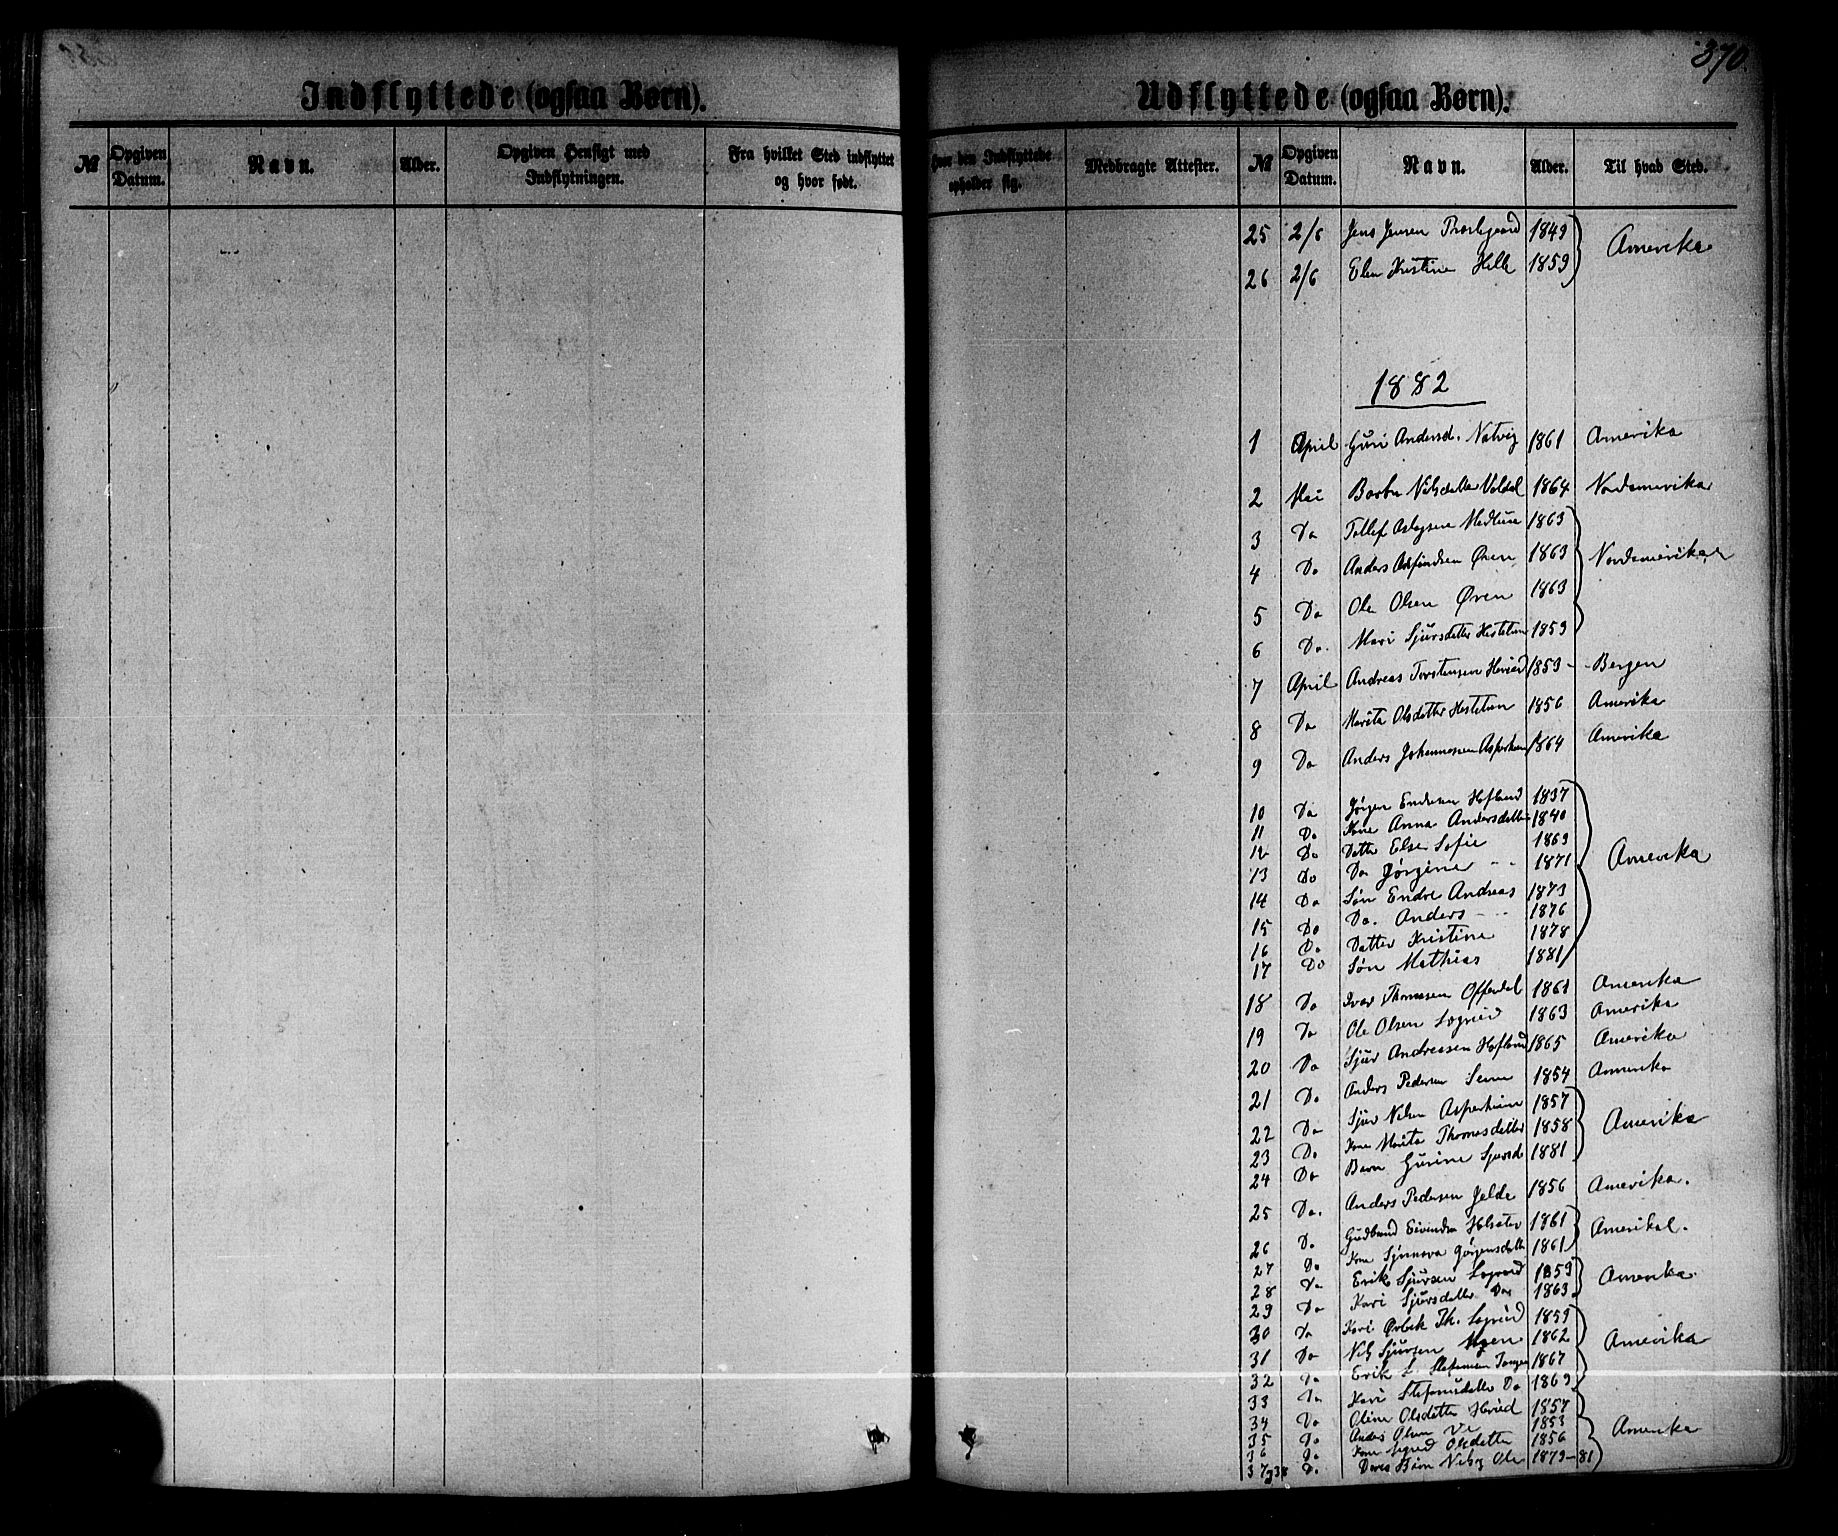 370
Indflyttede (ogsaa Børn).
Udflyttede (ogsaa Børn).
№ Opgiven Datum. Navn. Alder. Opgiven Hensigt med Indflytningen. Fra hvilket Sted indflyttet og hvor født.
Hvor den Indflyttede opholder sig. Meddragte Attester. № Opgiven Datum. Navn. Alder. Til hvad Sted.
25 2/6 Jens Jensen 1849 Amerika
26 2/6 Elen Kristine Helle 1859
1882
1 April Guri Andersd. Natvig 1861 Amerika
2 Mai Barbra Nilsdatter Voldal 1864 Nordamerika
3 Do Tollef Aslagsen 1863
4 Do Anders Asfindsen Øren 1863 Nordamerika
5 Do Ole Olsen Øren 1863
6 Do. Mari Sjursdatter Hestetun 1859
7 April Andreas Torstensen 1853 - Bergen
8 Do Marita Olsdatter Hestetun 1856 Amerika
9 Do Anders Johannessen Asperheim 1864 Amerika
10 Do Jørgen Endresen Hofland 1837
11 Do Kone Anna Andersdatter 1840
12 Do Datter Else Sofie 1869
13 Do Do Jørgine 1871 Amerika
14 Do Søn Endre Andreas 1873
15 Do Do. Anders 1876
16 Do Datter Kristine 1878
17 Do Søn Mathias 1881
18 Do Ivar Thomassen Offerdal 1861 Amerika
19 Do Ole Olsen Lægreid 1863 Amerika
20 Do Sjur Andreassen Hofland 1865 Amerika
21 Do Anders Pedersen 1854 Amerika
22 Do Sjur Nilsen Asperheim 1857
23 Do Kone Marita Thomasdatter 1858 Amerika
24 Do Barn Gurine Sjursd 1881
25 Do. Anders Pedersen Jelde 1856 Amerika.
26 Do Gudbrand Eivindsen 1861 Amerika
27 Do Kone Synneva Jørgensdatter 1861
28 Do Erik Sjursen Lægreid 1859 Amerika
29 Do Kari Sjursdatter Do 1863
30 Do Kari Th. Lægreid 1859
31 Do Nils Sjursen Moen 1862 Amerika
32 Do Erik 1867
33 Do Kari Stefansdatter Do 1869
34 Do Oline Olsdatter 1857
35 Do Anders Olsen Vi 1853 Amerika
36 Do Kone Sigrid Olsdatter 1856
37 & 38 Do Deres Børn Nils og Ole 1879-81